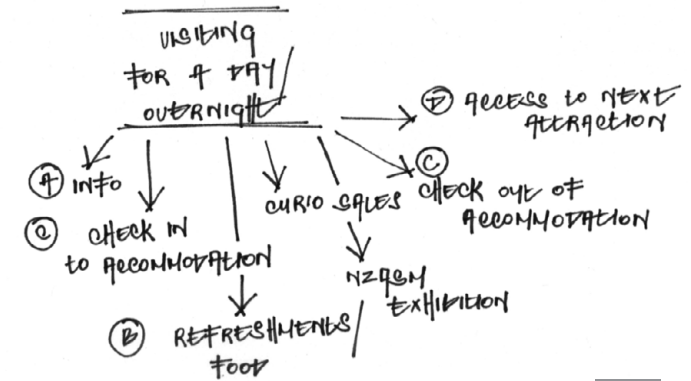 VISITING
FOR A DAY /
OVERNIGHT
D ACCESS TO NEXT
ATTRACTION
A INFO
C
CHECK OUT OF
ACCOMMODATION
CURIO SALES
C CHECK IN
TO ACCOMMODATION
NZASM
EXHIBITION
B REFRESHMENTS /
FOOD